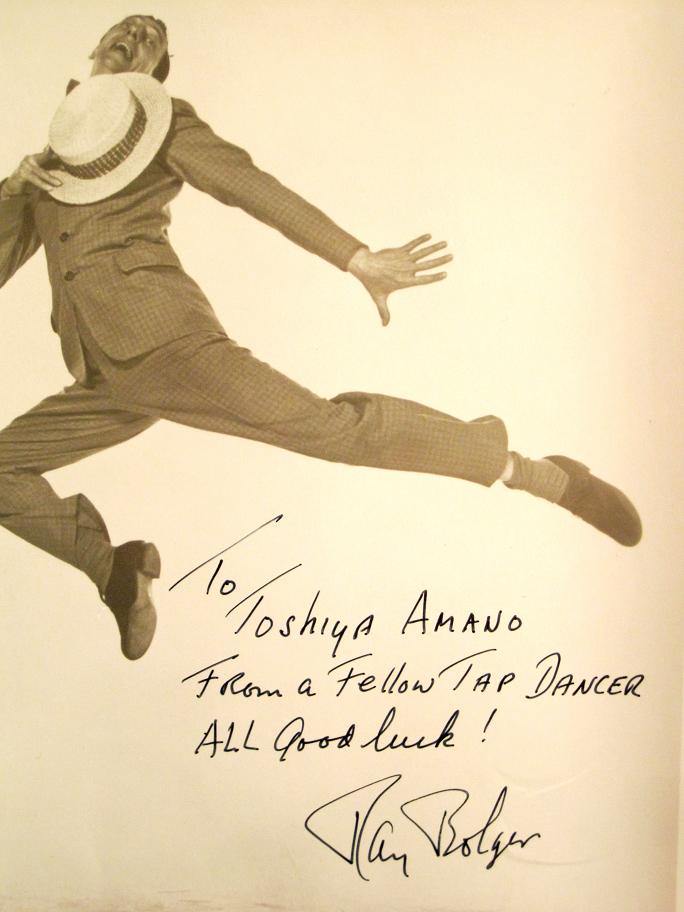 To
Toshiya Amano
From a Fellow Tap Dancer
All Good luck!
Ray Bolger